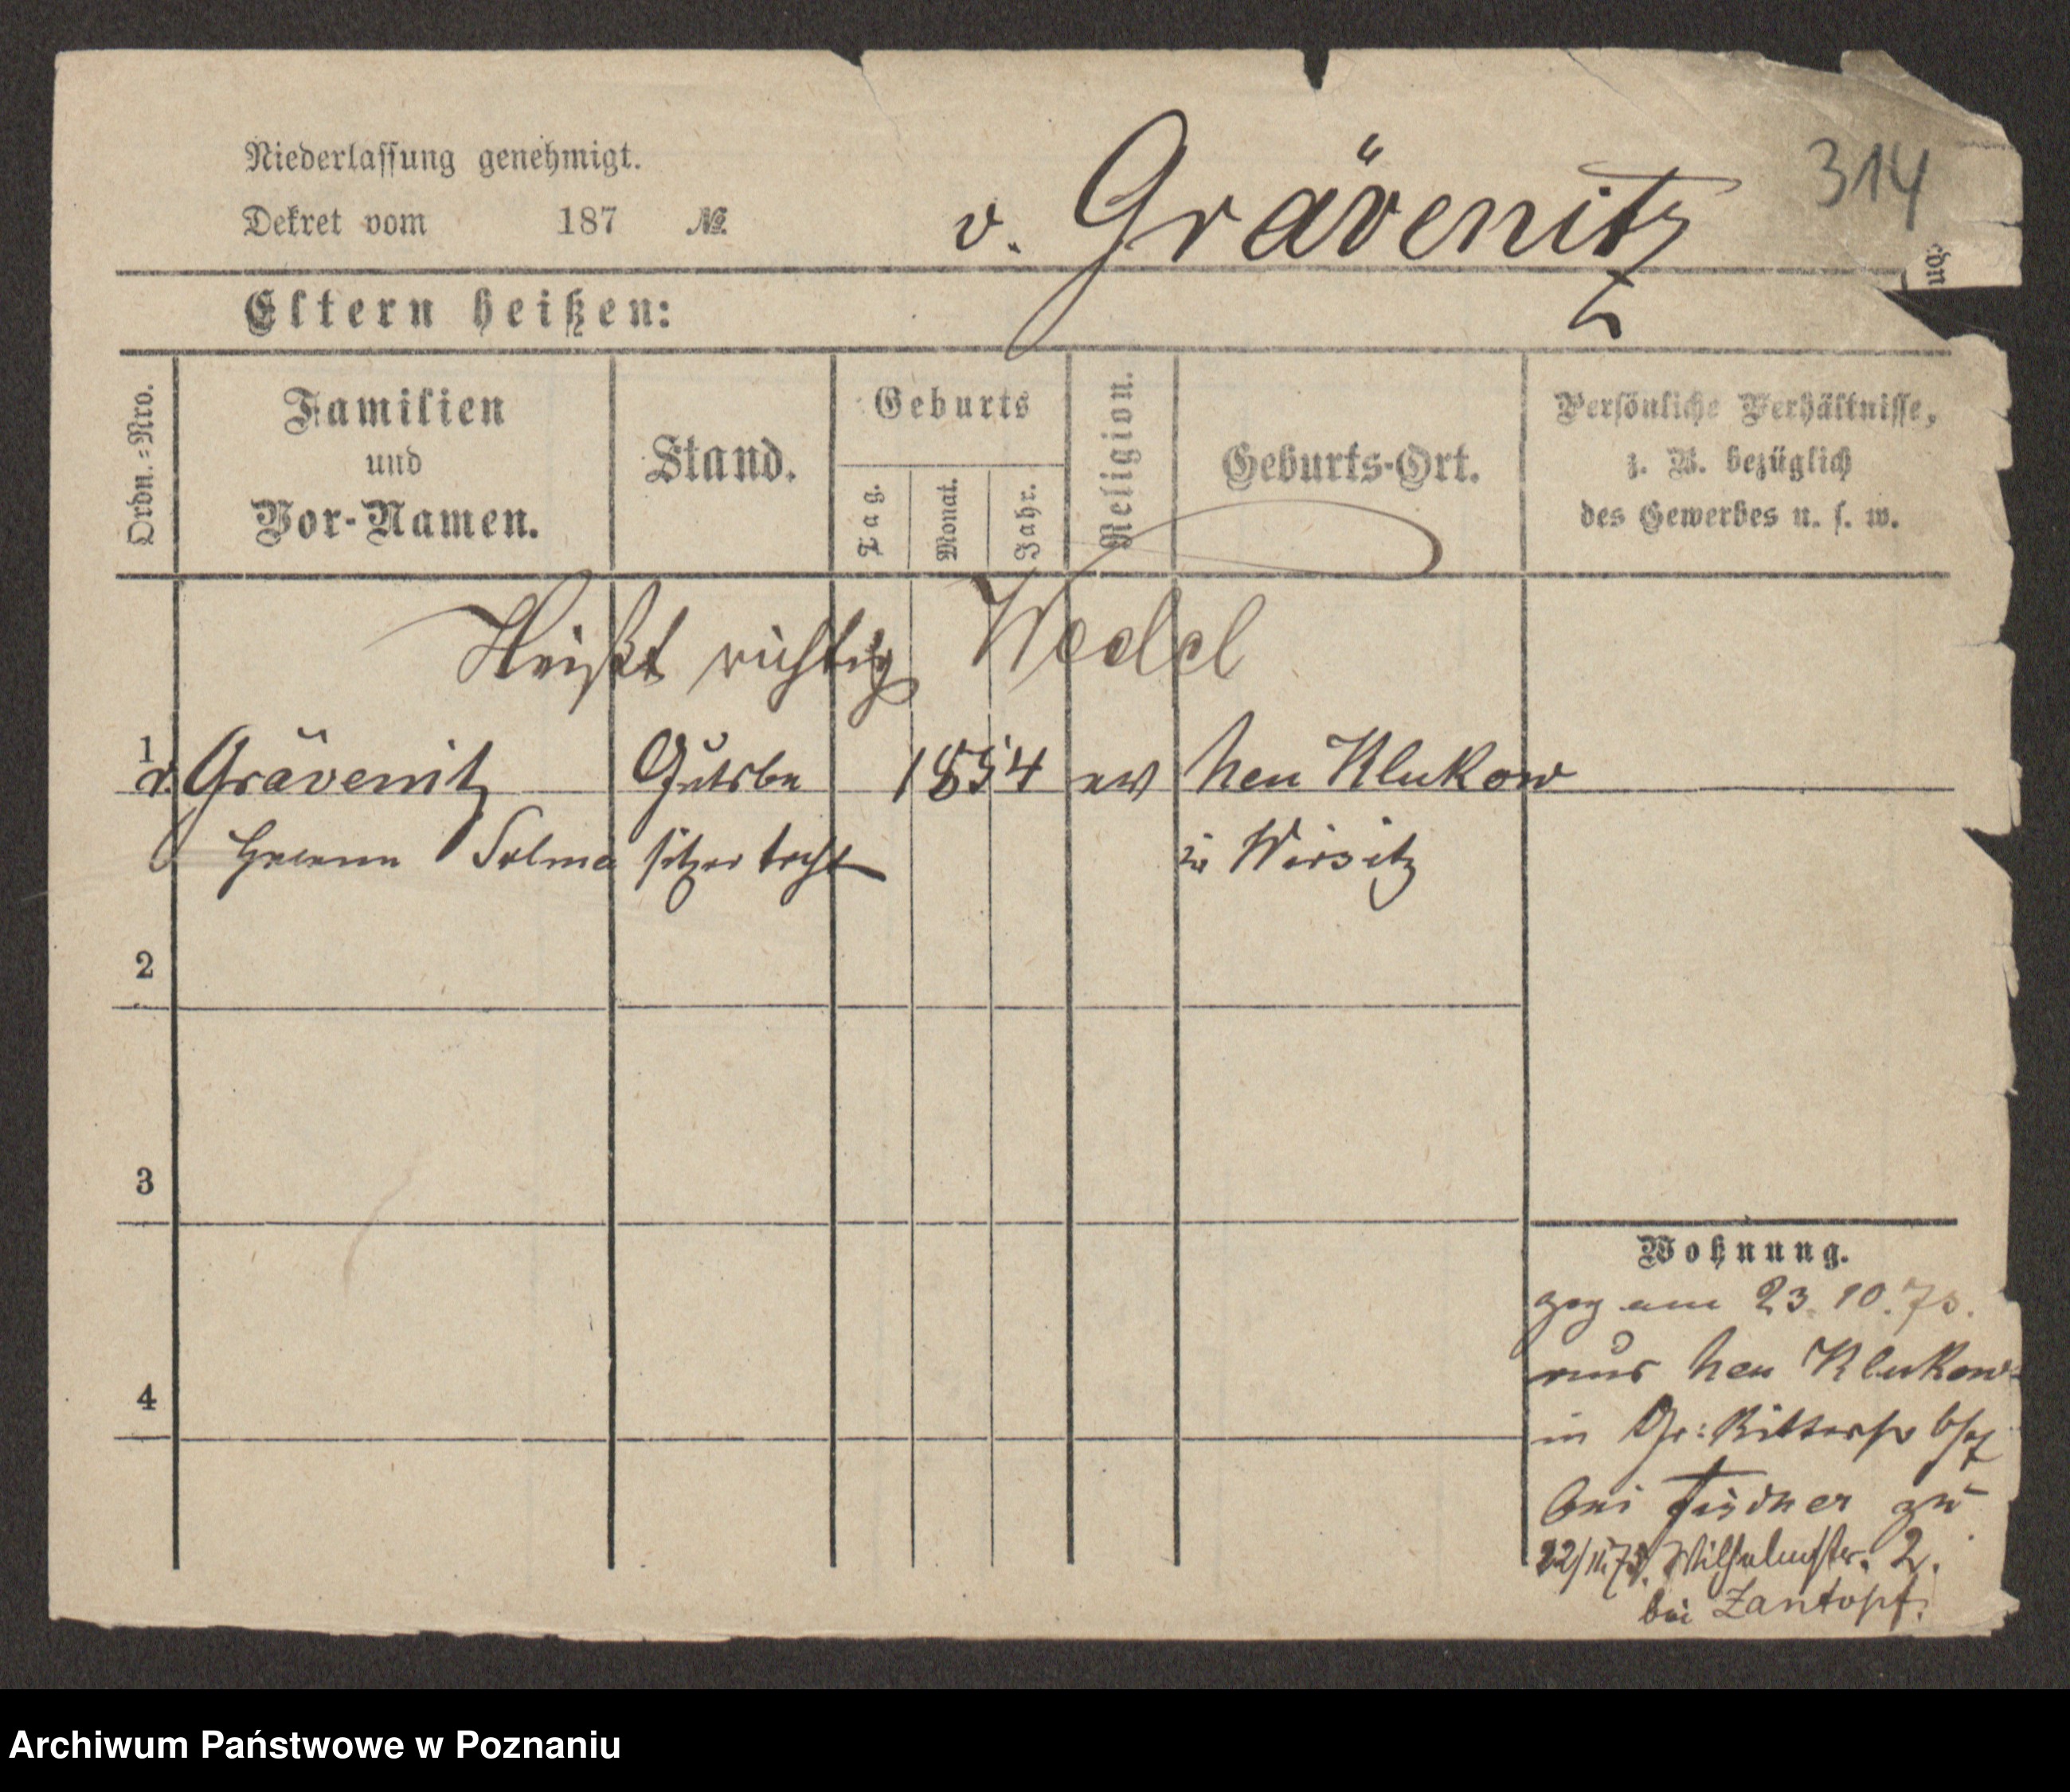 314
Niederlassung genehmigt.
Dekret vom 187 №.
v. Grävenitz
Eltern heißen:
Ordn.=Nro.
Familien
und
Vor-Namen.
Stand.
Geburts
Tag.
Monat.
Jahr.
Religion.
Geburts-Ort.
Persönliche Verhältnisse,
z. B. bezüglich
des Gewerbes u. s. w.
Heißt richtig Wedel
1
v. Grävenitz Gutsbe 1854 ev Neu Klukow
Selma sitzer tocht in Wirsitz
2
3
4
Wohnung.
zog am 23.10.73.
aus Neu Klukow
in Gr: Ritterstr
bei zu
22/11.73. Wilhelmstr. 2.
bei Zantopf.
Archiwum Państwowe w Poznaniu